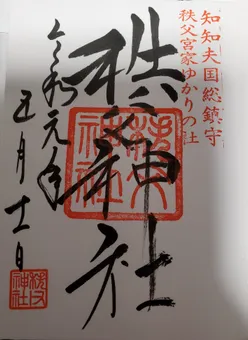 知知夫国総鎮守
秩父宮家ゆかりの社
秩父神社
秩父神社
令和元年
五月十一日
秩父神社